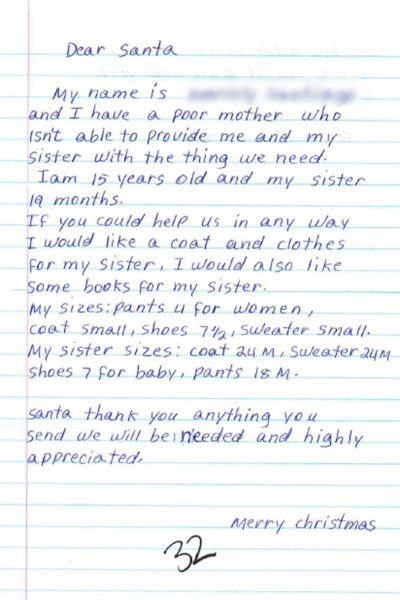 Dear Santa
My name is
and I have a poor mother who
isn't able to provide me and my
sister with the thing we need.
I am 15 years old and my sister
19 months.
If you could help us in any way
I would like a coat and clothes
for my sister, I would also like
some books for my sister.
My sizes: pants 4 for women,
coat small, shoes 7½, sweater small.
My sister sizes: coat 24 M, sweater 24M
shoes 7 for baby, pants 18 M.
santa thank you anything you
send we will be needed and highly
appreciated.
Merry christmas
32